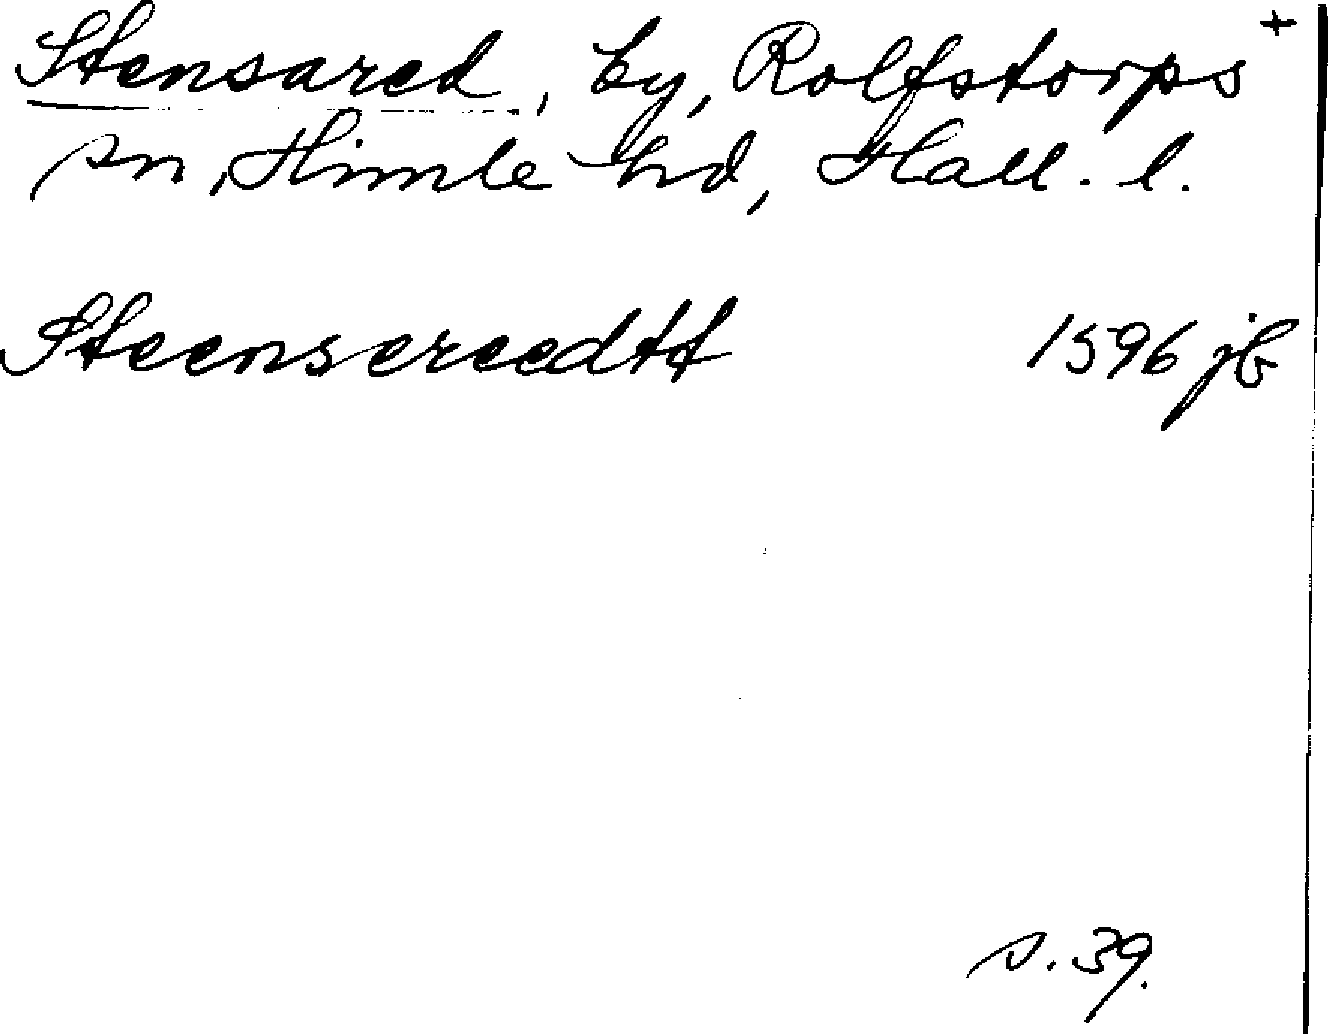 Stensared, by, Rolfstorps +
sn, Himle hd, Hall. l.
Steensereedtt 1596 jb
s. 39.